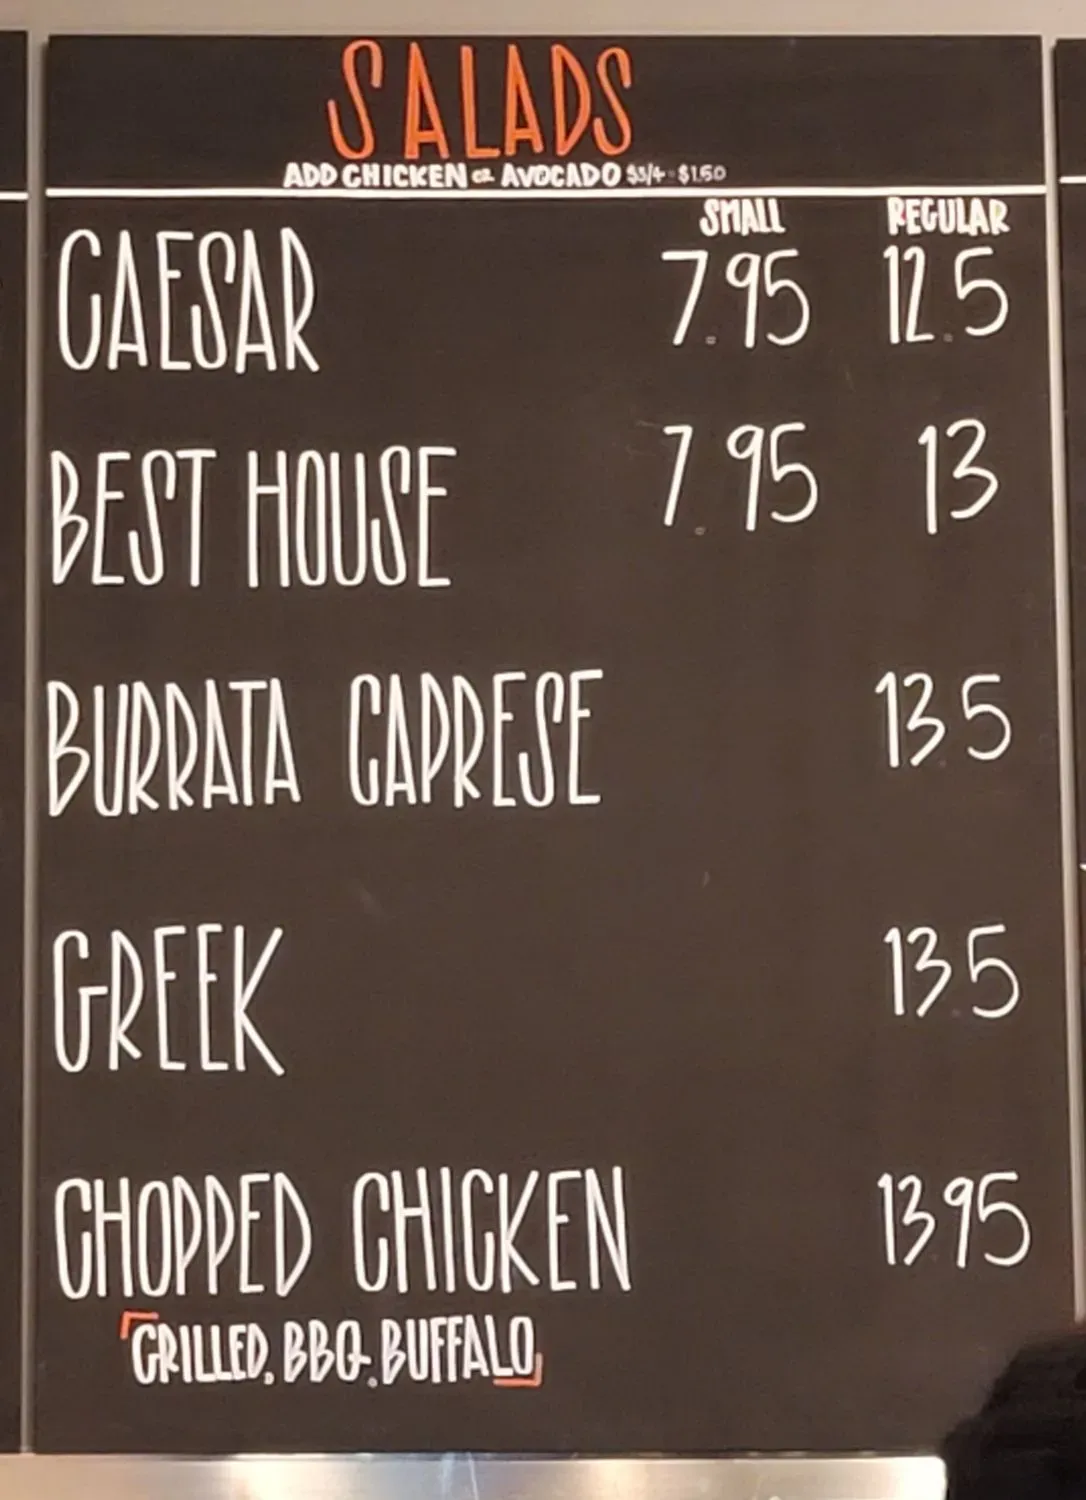 SALADS
ADD CHICKEN OR AVOCADO $3/4 $1.50
SMALL REGULAR
CAESAR 7.95 12.5
BEST HOUSE 7.95 13
BURRATA CAPRESE 13.5
GREEK 13.5
CHOPPED CHICKEN 13.95
GRILLED, BBQ, BUFFALO